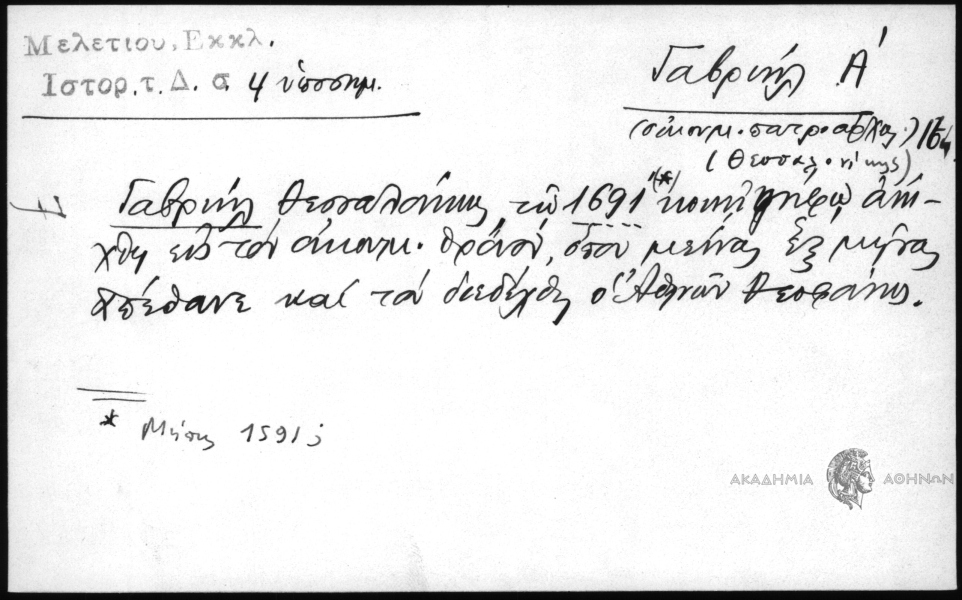 Μελετίου, Εκκλ.
Ιστορ. τ. Δ. σ. 4 ὑποσημ.
Γαβριήλ Α΄
(οἰκουμ. πατριάρχης)
(Θεσσαλονίκης)
Γαβριήλ Θεσσαλονίκης, τῷ 1691 (*) κοινῇ ψήφῳ ἀνή-
χθη εἰς τόν οἰκουμ. θρόνον, ὅπου μείνας ἕξ μῆνας
ἀπέθανε καί τόν διεδέχθη ὁ Ἀθηνῶν Θεοφάνης.
* Μήπως 1591;
ΑΚΑΔΗΜΙΑ ΑΘΗΝΩΝ